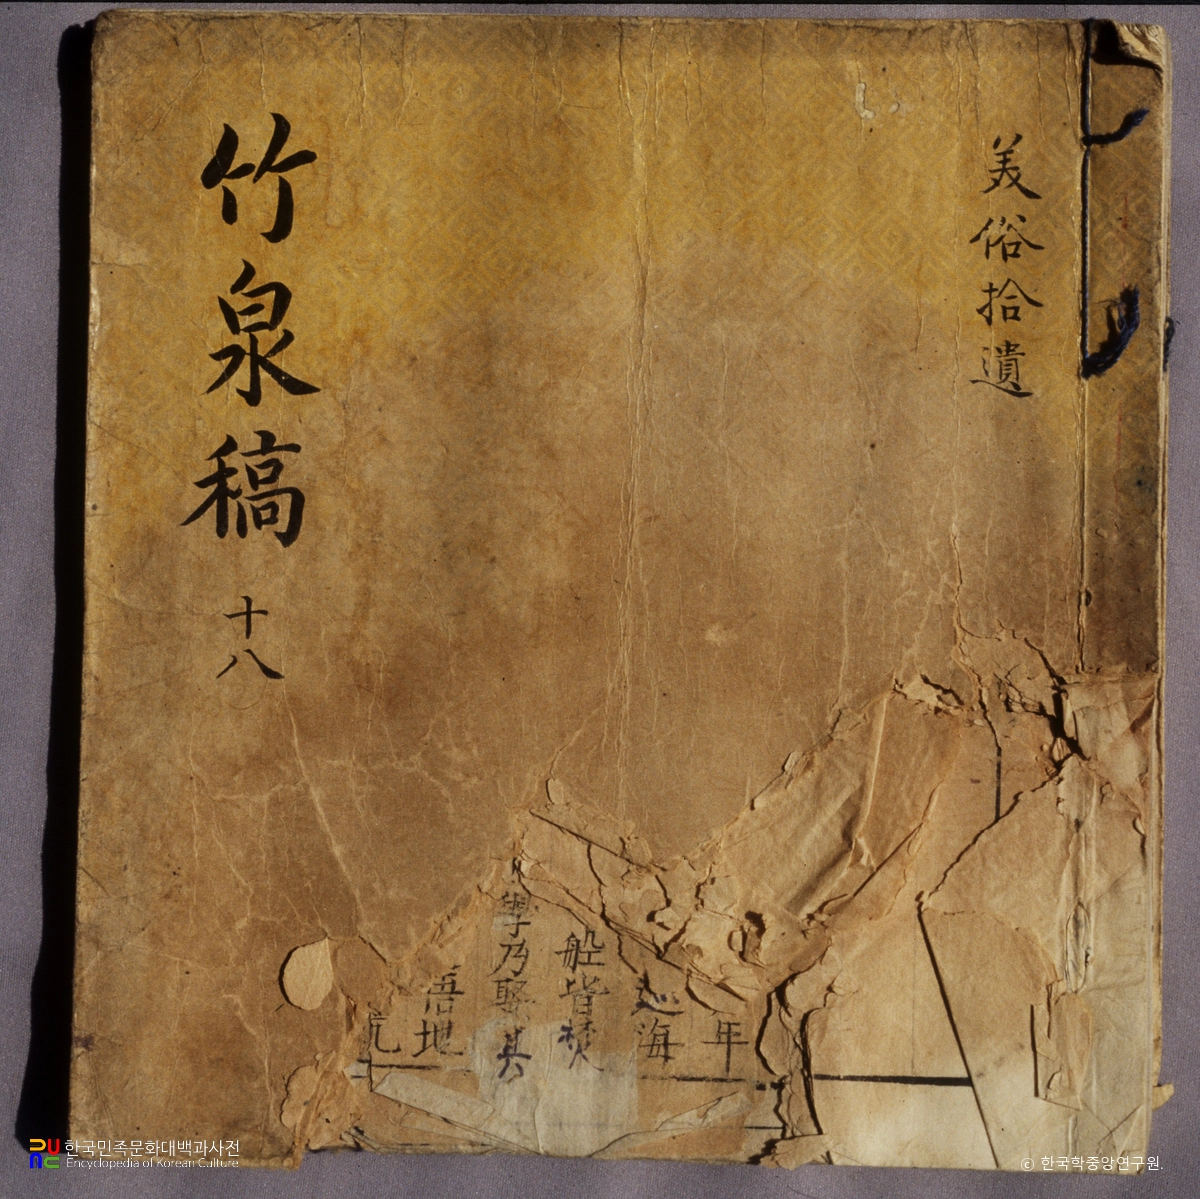 美俗拾遺
竹泉稿 十八
年
海
船皆焚
學乃娶其
悟地
한국민족문화대백과사전
Encyclopedia of Korean Culture
© 한국학중앙연구원.